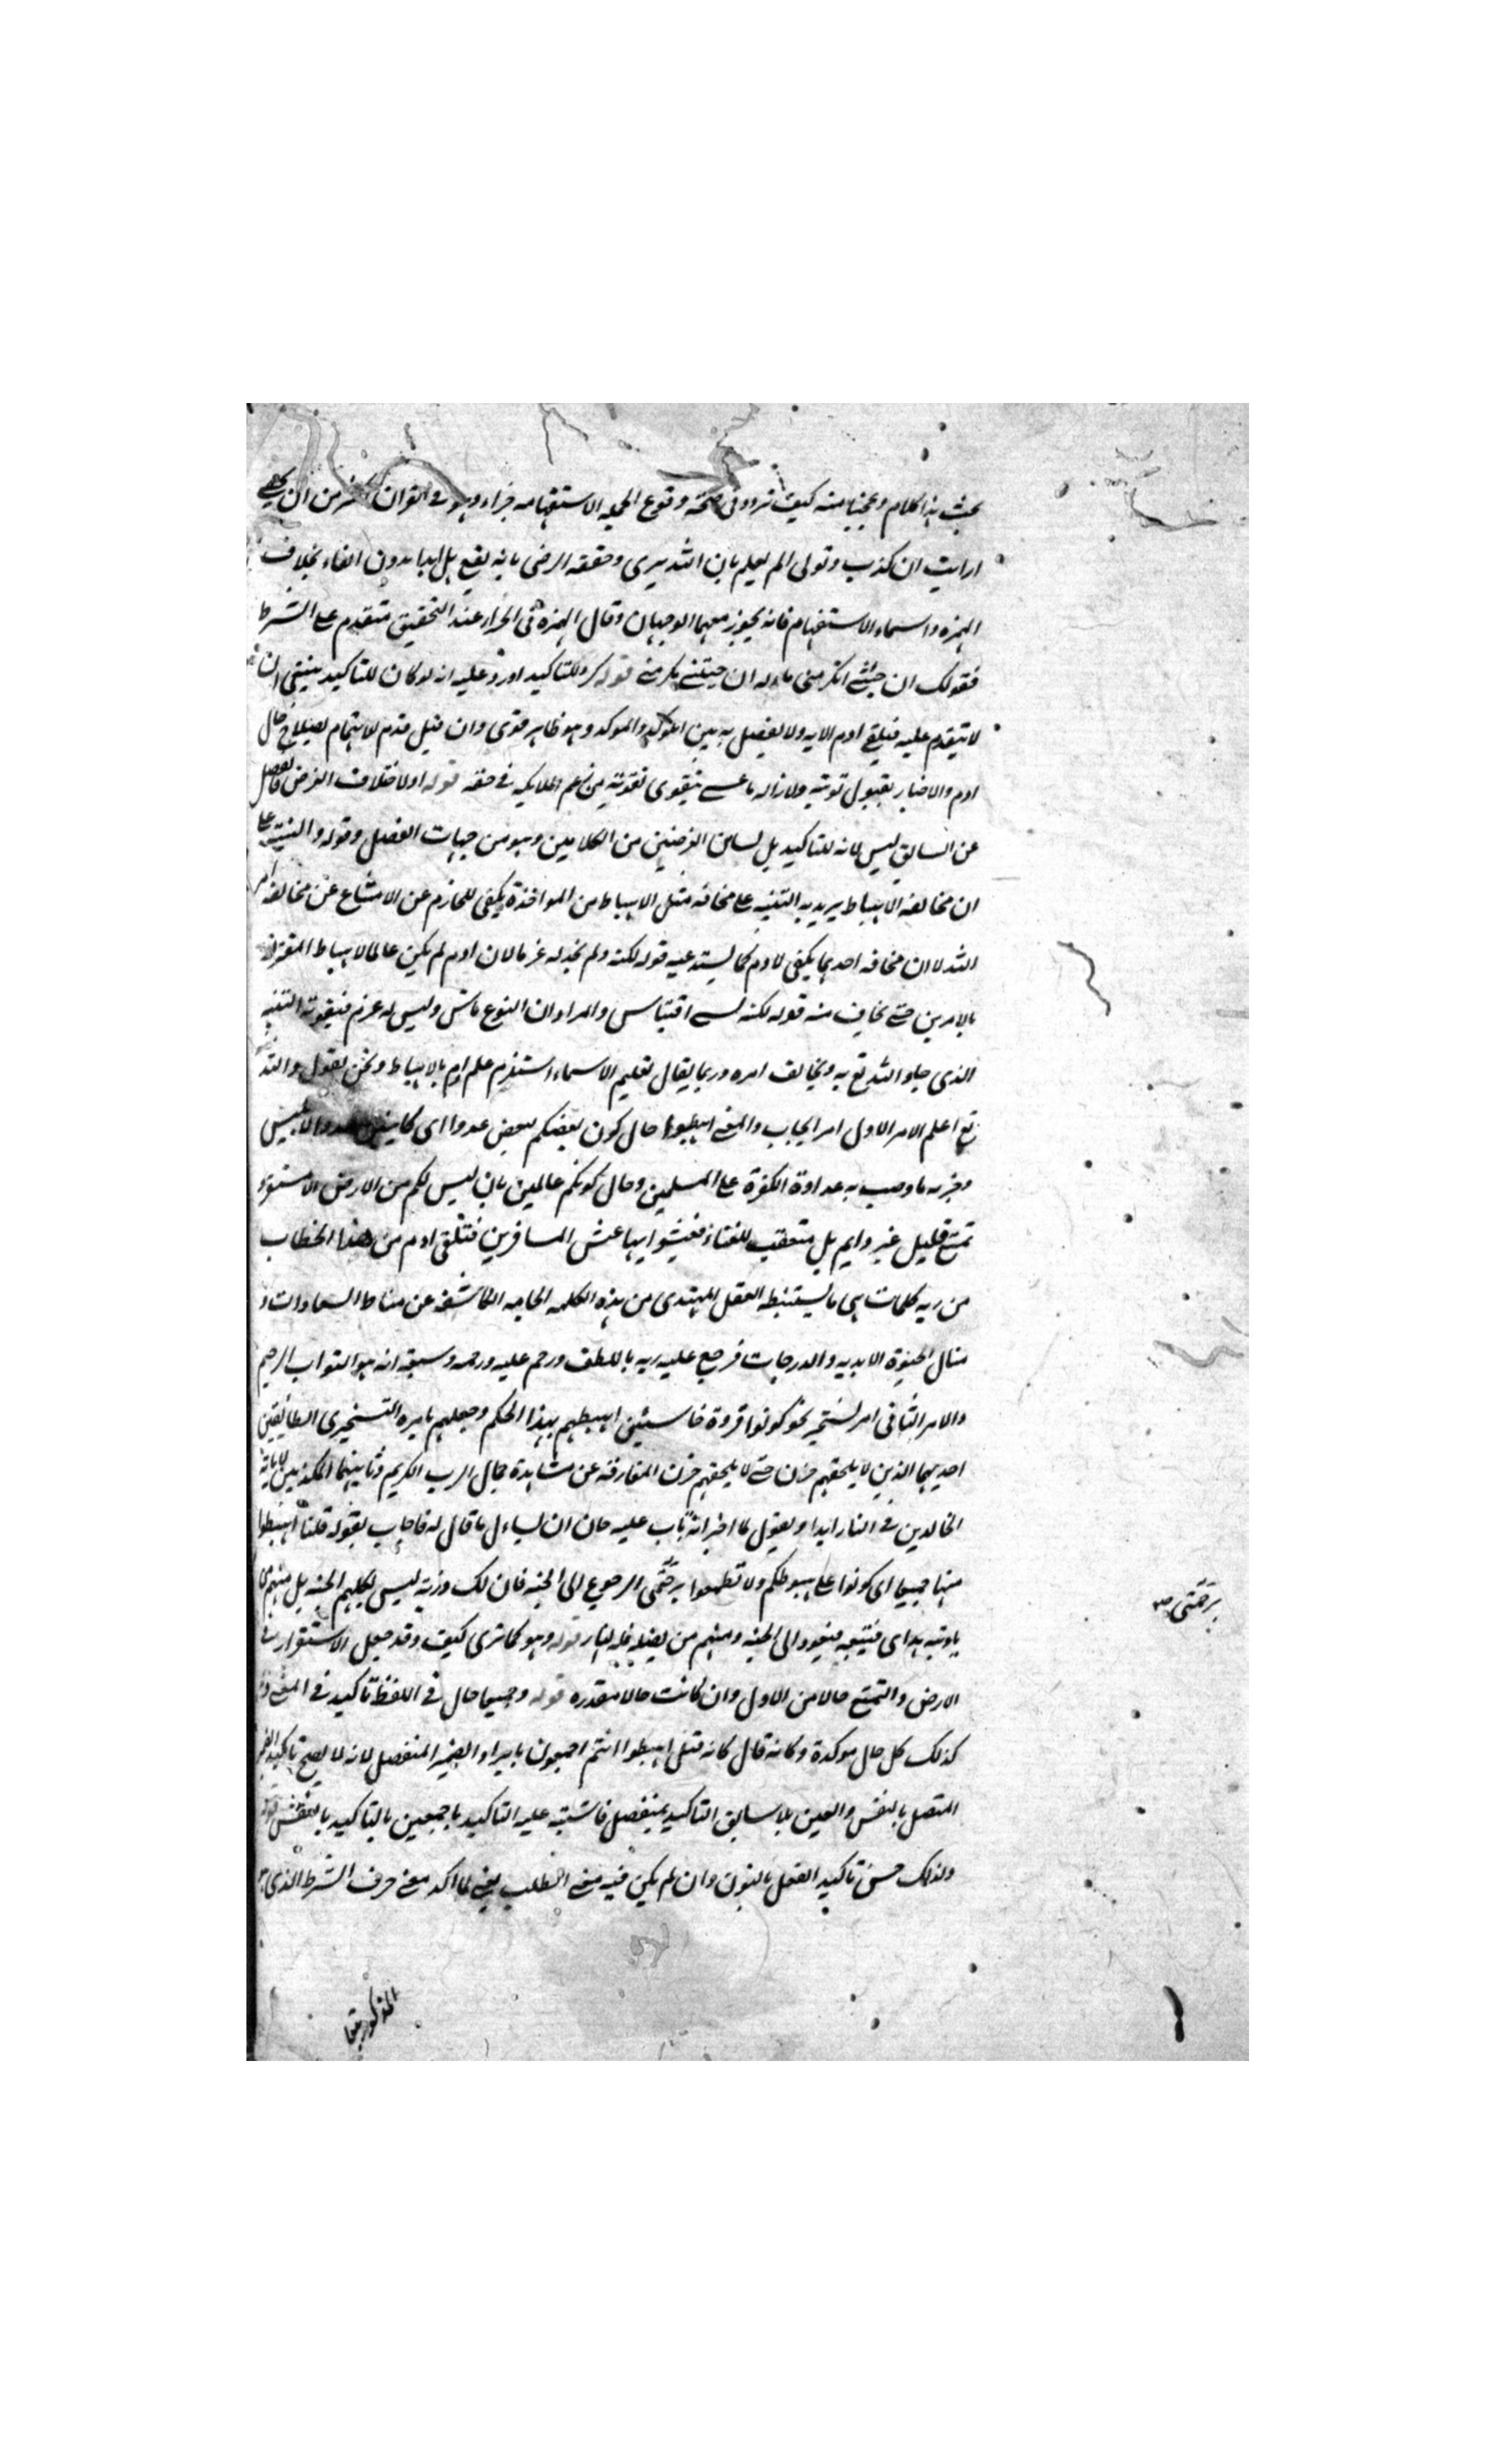 بحث هذا الكلام وعجبا منه كيف تردد فى صحة وقوع الجملة الاستفهاميه جزاء وهو فى القران اكثر من ان يحصى
ارايت ان كذب وتولى الم يعلم بان الله يرى وحققه الرضى بانه يقع بل ابدا بدون الفاء بخلاف
الهمزه واسماء الاستفهام فانه يجوز معهما الوجهان وقال الهمزة فى الجزاء عند التحقيق متقدم على الشرط
فقولك ان جئتنى اتكرمنى ان جئتنى تكرمنى قوله كرر للتاكيد اورد عليه انه لو كان للتاكيد ينبغى ان
لا يتقدم عليه فتلقى ادم الايه ولا يفصل به بين المؤكد والموكد وهو ظاهر قوى وان قيل قدم للاهتمام لصلاح حال
ادم والاخبار بقبول توبته ولازاله ما عسى يتقوى من زعم الملايكه فى حقه قوله او لاختلاف الغرض فالفصل
عن السابق ليس لانه للتاكيد بل لتباين الغرضين من الكلامين وهو من جهات الفصل وقوله والتنبيه على
ان مخالفة الاهباط يريد به التنبيه على مخافه مثل الاهباط من المواخذة يكفى للحازم عن الامتناع عن مخالفة امر
الله لا ان مخافه احدهما يكفى لادم كما يستدعيه قوله لكنه ولم نجد له عزما لان ادم لم يكن عالما لاهباط المقترن
بالامرين حتى يخاف منه قوله لكنه نسى اقتباس والمراد ان النوع ناس وليس له عزم فيفوته التنبيه
الذى جاد الله تع به ويخالف امره وربما يقال تعليم الاسماء استلزم علم ادم بالاهباط ونحن نقول والله
تع اعلم الامر الاول امر ايجاب والمعنى اهبطوا حال كون بعضكم لبعض عدوا اى الابليس
وحزبه ما وجب به عداوة الكفرة على المسلمين وحال كونكم عالمين بان ليس لكم من الارض الا مستقر و
تمتع قليل غير دايم بل متعقب للفناء فعيشوا بها عيش المسافرين فتلقى ادم من هذا الخطاب
من ربه كلمات هى ما يستنبطه العقل المهتدى من هذه الكلمه الجامعه الكاشفه عن مناط السعادات و
منال الحيوة الابديه والدرجات فرجع عليه ربه باللطف ورحم عليه ورحمه وسبقه انه هو التواب الرحيم
والامر الثانى امر تسخير نحو كونوا قردة خاسئين اهبطهم بهذا الحكم وجعلهم بامره التسخيرى الطائفتين
احديهما الذين لا يلحقهم حزن حتى لا يلحقهم حزن المفارقه عن مشاهدة جمال الرب الكريم وثانيهما المكذبين لاياته
الخالدين فى النار ابدا ونقول لما اخبر انه تاب عليه حان ان يساءل ما قال له فاجاب بقوله قلنا اهبطوا
منها جميعا اى كونوا على هبوطكم ولا تطمعوا برحمتى الرجوع الى الجنه فان لك ذريه ليس لكلهم الجنه بل منهم من
ياتيه هداى فيتبعه فيعود الى الجنه ومنهم من يضله فله النار قوله وهو كما ترى كيف وقد جعل الاستقرار فى
الارض والتمتع حالا من الاول وان كانت حالا مقدره قوله وجميعا حال فى اللفظ تاكيد فى المعنى
كذلك كل حال موكدة وكانه قال كانه قيل اهبطوا انتم اجمعون بايراد الضمير المنفصل لانه لا يصح تاكيد الضمير
المتصل بالنفس والعين بلا سابق التاكيد بمنفصل فاشتبه عليه التاكيد باجمعين بالتاكيد بالنفس قوله
ولذلك حسن تاكيد الفعل بالنون وان لم يكن فيه معنى الطلب يعنى لما اكد معنى حرف الشرط الذى
المذكور بقا